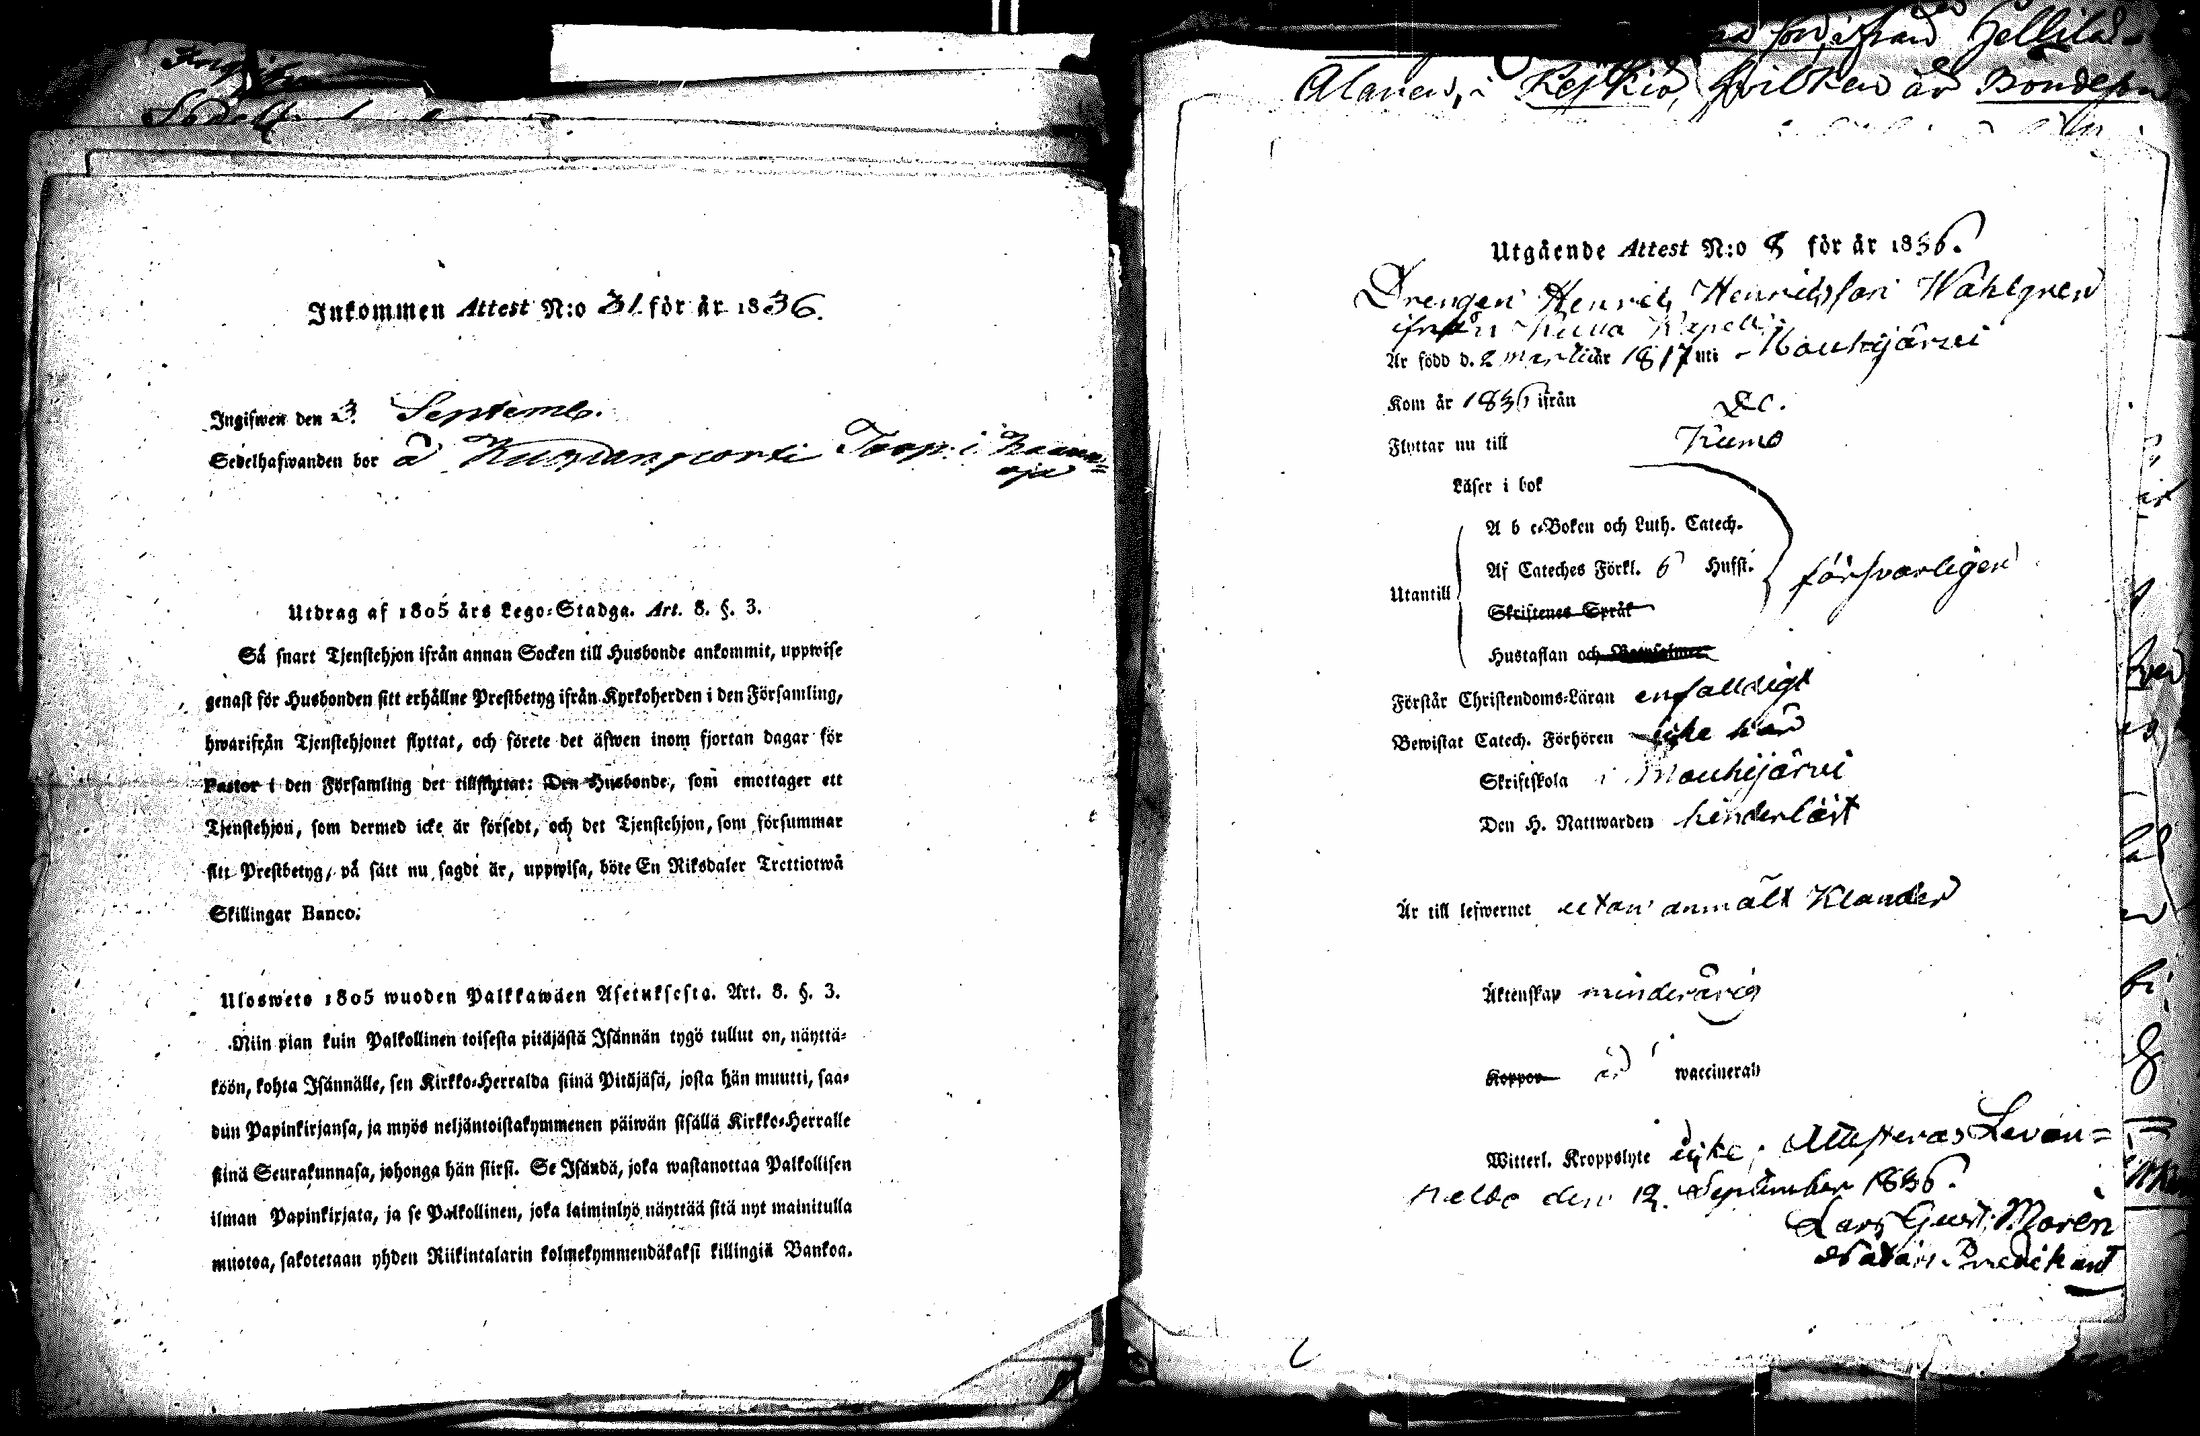 Alanen, i Keikiö, hvilken är Bondeson
Inkommen Attest N:o 31. för år 1836.
Ingifwen den 3. Septemb.
Sedelhafwanden bor å Torp. i
Utdrag af 1805 års Lego-Stadga. Art. 8. §. 3.
Så snart Tjenstehjon ifrån annan Socken till Husbonde ankommit, uppwise
genast för Husbonden sitt erhållne Prestbetyg ifrån Kyrkoherden i den Församling,
hwarifrån Tjenstehjonet flyttat, och förete det äfwen inom fjortan dagar för
Pastor i den Församling det tillflyttat: Den Husbonde, som emottager ett
Tjenstehjon, som dermed icke är försedt, och det Tjenstehjon, som försummar
sitt Prestbetyg, på sätt nu sagdt är, uppwisa, böte En Riksdaler Trettiotwå
Skillingar Banco.
Ulosweto 1805 wuoden Palkkawäen Asetuksesta. Art. 8. §. 3.
Niin pian kuin Palkollinen toisesta pitäjästä Isännän tygö tullut on, näyttä-
köön, kohta Isännälle, sen Kirkko-Herralda siinä Pitäjäsä, josta hän muutti, saa-
dun Papinkirjansa, ja myös neljäntoistakymmenen päiwän sisällä Kirkko-Herralle
siinä Seurakunnasa, johonga hän siirsi. Se Isändä, joka wastanottaa Palkollisen
ilman Papinkirjata, ja se Palkollinen, joka laiminlyö näyttää sitä nyt mainitulla
muotoa, sakotetaan yhden Riikintalarin kolmekymmendäkaksi killingiä Bankoa.
Utgående Attest N:o 8 för år 1836.
Drengen Henrik Henriksson Wahlgren
ifrån Kapell
Är född d. 2 Martii år 1817 uti Mouhijärvi
Kom år 1836 ifrån Dc.
Flyttar nu till Kumo
Läser i bok
A b c-Boken och Luth. Catech.
Af Cateches Förkl. 6 Hufst. försvarligen
Utantill
Skriftenes Språk
Hustaflan och Botpsalmer
Förstår Christendoms-Läran enfalldigt
Bewistat Catech. Förhören icke här
Skriftskola i Mouhijärvi
Den H. Nattwarden hinderlöst
Är till lefwernet utan anmält Klander
Äktenskap minderårig
Koppor är waccinerad
Witterl. Kroppslyte icke, Attesteras Lavan=
nelbo den 12. September 1836.
Lars Gust. Morén
Predikant